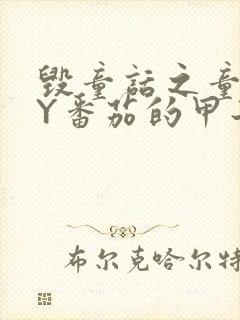 毁童话之童
Y番茄的甲
布尔克哈尔特